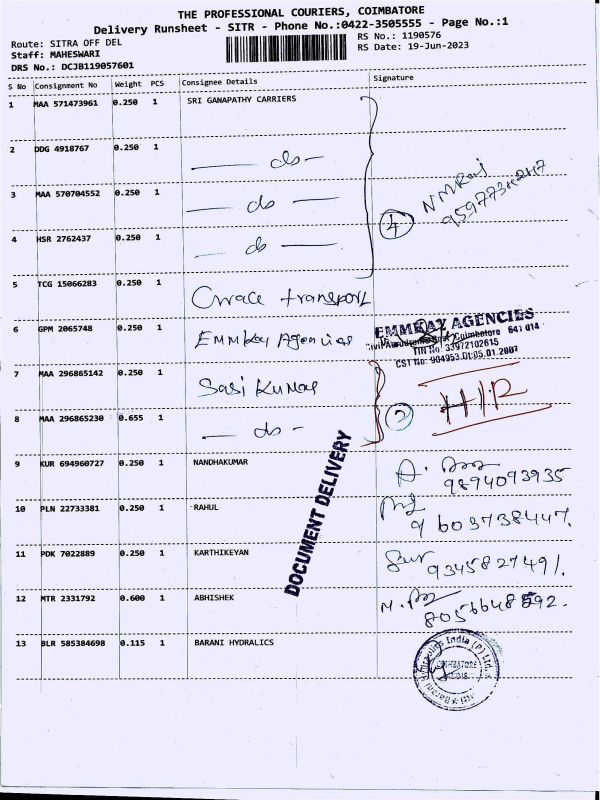 THE PROFESSIONAL COURIERS, COIMBATORE
Delivery Runsheet - SITR - Phone No.:0422-3505555 - Page No.:1
Route: SITRA OFF DEL
RS No.: 1190576
Staff: MAHESWARI
RS Date: 19-Jun-2023
DRS No.: DCJB119057601
S No Consignment No Weight PCS Consignee Details Signature
1 MAA 571473961 0.250 1 SRI GANAPATHY CARRIERS
2 DDG 4918767 0.250 1 — do —
3 MAA 570704552 0.250 1 — do —
4 HSR 2762437 0.250 1 — do —
4
NMRaj
5 TCG 15066283 0.250 1 Grace transport
6 GPM 2065748 0.250 1 EMMKay Agencies
EMMKAY AGENCIES
Coimbatore 641 014
TIN No: 33972102615
CST No: 904953.Dt:05.01.2007
7 MAA 296865142 0.250 1 Sasi Kumar
8 MAA 296865230 0.655 1 — do —
2
DOCUMENT DELIVERY
9 KUR 694960727 0.250 1 NANDHAKUMAR
9894093935
10 PLN 22733381 0.250 1 RAHUL
9603738447.
11 PDK 7022889 0.250 1 KARTHIKEYAN
9345827491.
12 MTR 2331792 0.600 1 ABHISHEK
13 BLR 585384698 0.115 1 BARANI HYDRALICS
India (P) Ltd.
COIMBATORE